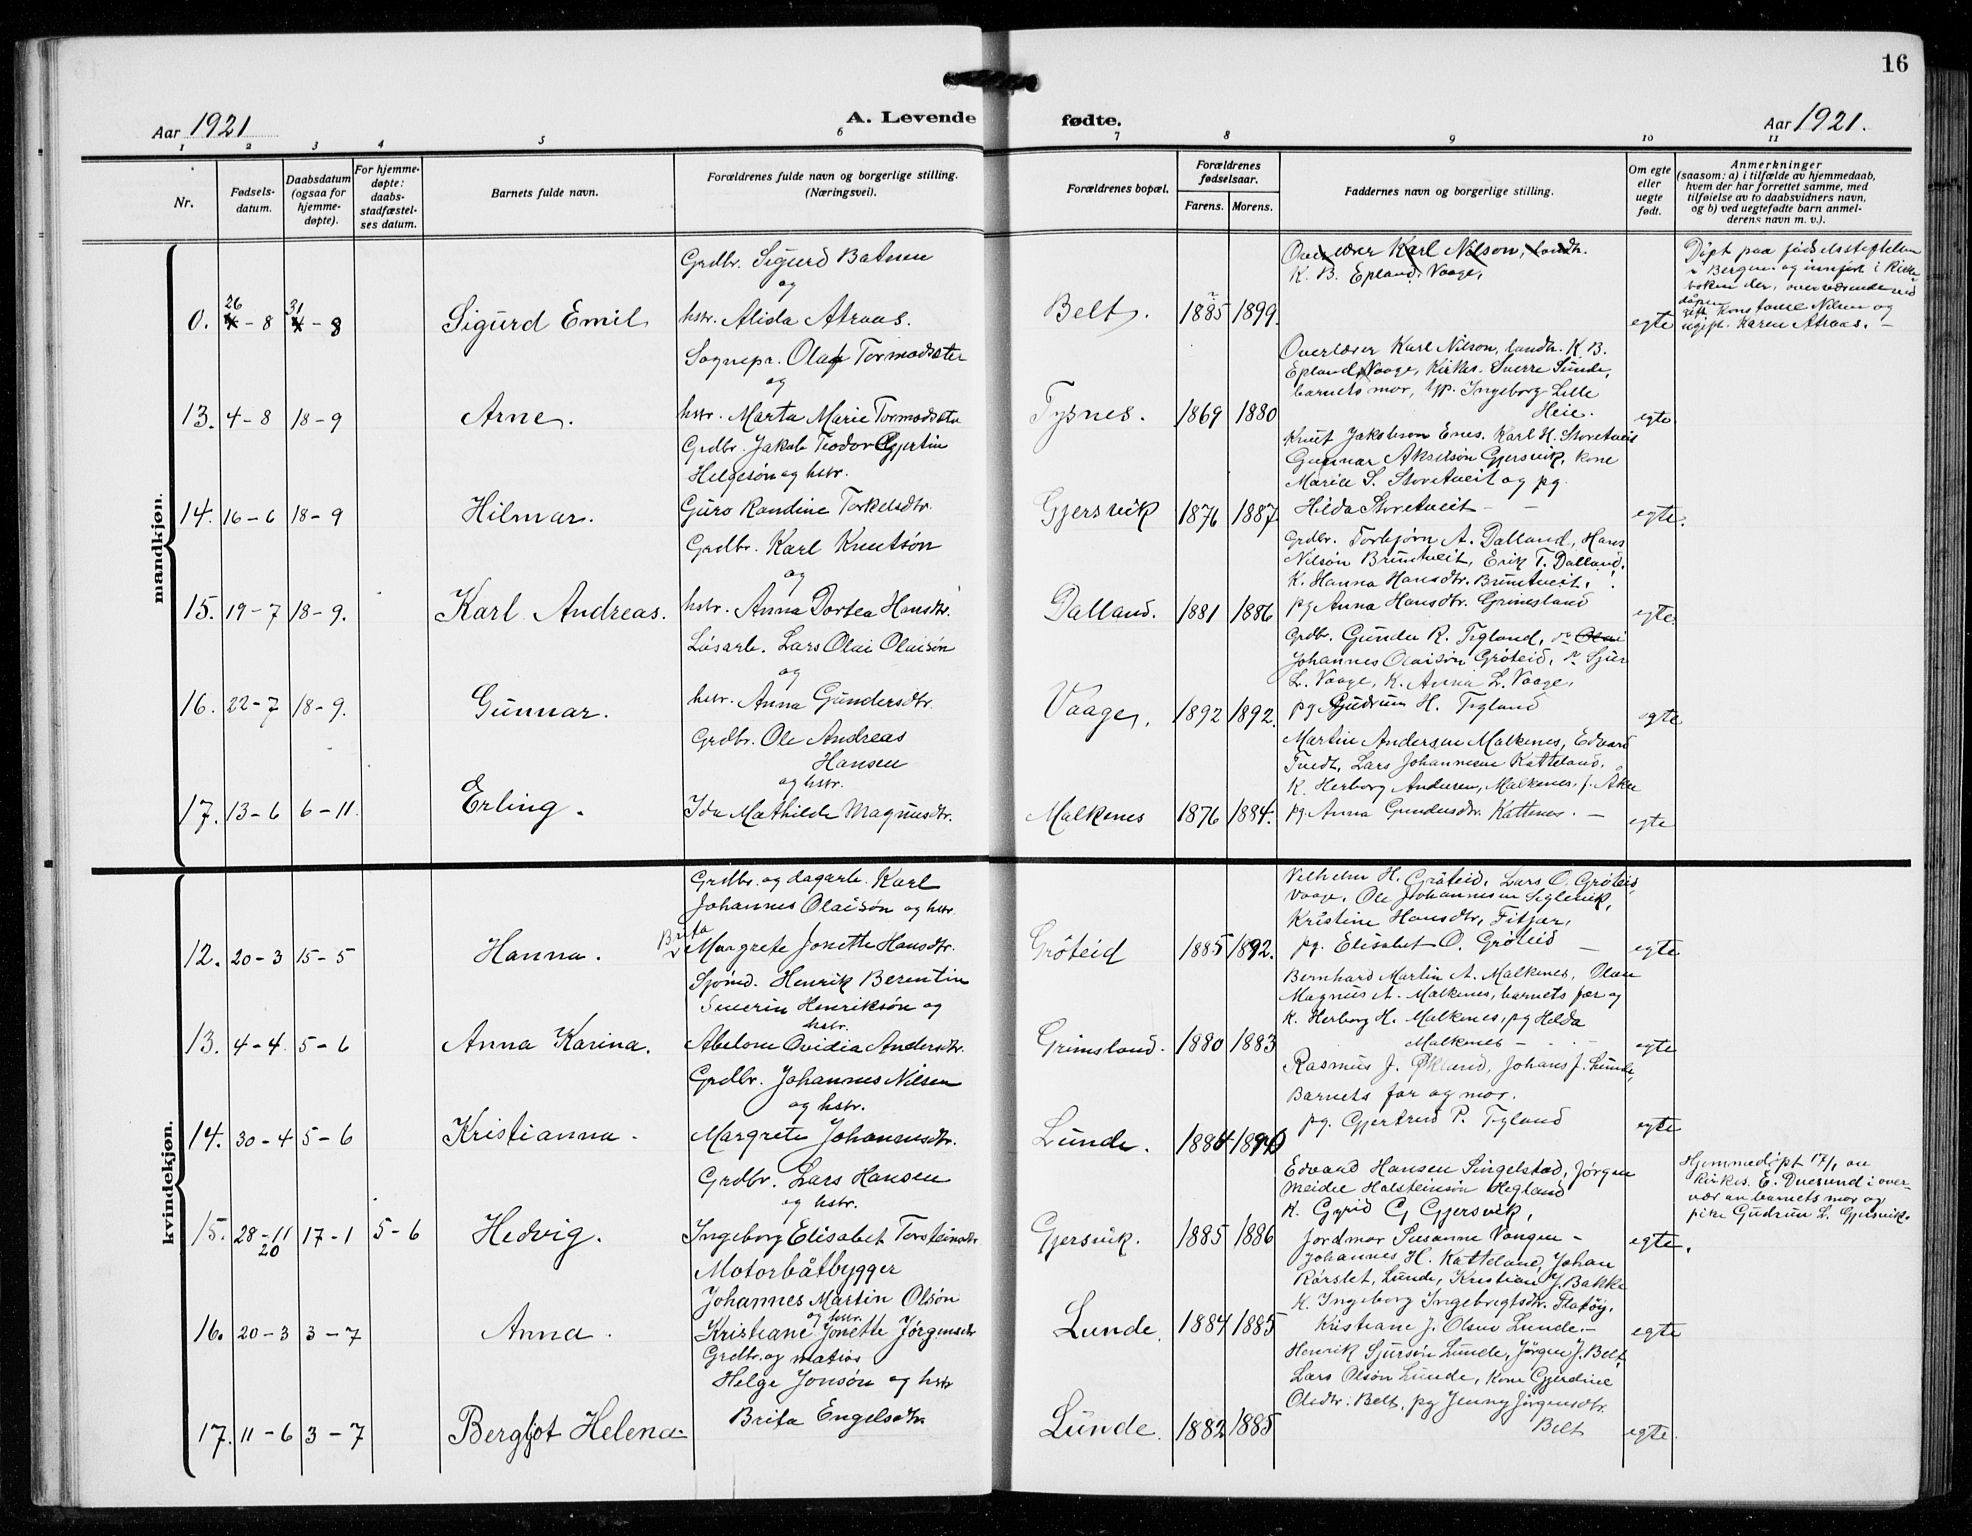 16
Aar 1921
A. Levende
fødte.
Aar 1921.
1 2 3 4 5 6 7 8 9 10 11
Nr.
Fødsels-
datum.
Daabsdatum
(ogsaa for
hjemme-
døpte).
For hjemme-
døpte:
daabs-
stadfæstel-
ses datum.
Barnets fulde navn.
Forældrenes fulde navn og borgerlige stilling.
(Næringsvei).
Forældrenes bopæl.
Forældrenes
fødselsaar.
Farens. Morens.
Faddernes navn og borgerlige stilling.
Om egte
eller
uegte
født.
Anmerkninger
(saasom: a) i tilfælde av hjemmedaab,
hvem der har forrettet samme, med
tilføielse av to daabsvidners navn,
og b) ved uegtefødte barn anmel-
derens navn m. v.).
mandkjøn.
0. 26 - 8 31 - 8 Sigurd Emil
Grdbr. Sigurd Batnen
og
hstr. Alida Atraas.
Belt. 1885 1899.
Overlærer Karl Nilson, landh.
K. B. Epland, Vaage,
egte
Døpt paa fødselsstiftelsen
i Bergen og innført i Kirke
boken der, overværende ved
dåpen Konstanse Nilsen og
ugift. Karen Atraas. -
13. 4-8 18-9 Arne.
Sognepr. Olaf Tormodsæter
og
hstr. Marta Marie Tormodsæter
Tysnes. 1869 1880
Overlærer Karl Nilson, landh. K. B.
Epland, Vaage, Kirkes. Sverre Sunde,
barnets mor, yp. Ingeborg Lille
Heie.
egte
14. 16-6 18-9 Hilmar.
Grdbr. Jakob Teodor Gjertin
Helgesøn og hstr.
Guro Randine Torkelsdtr.
Gjersvik 1876 1887
Knut Jakobson Enes. Karl H. Storetveit
Gunnar Akselsøn Gjersvik, kone
Marie S. Storetveit og pg.
Hilda Storetveit - -
egte.
15. 19-7 18-9. Karl Andreas.
Grdbr. Karl Knutsøn
og
hstr. Anna Dortea Hansdtr.
Dalland. 1881 1886
Grdbr. Torbjørn A. Dalland, Hans
Nilsøn Bruntveit, Erik T. Dalland.
K. Hanna Hansdtr. Bruntveit,
pg Anna Hansdtr. Grimsland
egte.
16. 22-7 18-9. Gunnar.
Løsarb. Lars Olai Olaisøn
og
hstr. Anna Gundersdtr.
Vaage, 1892 1892.
Grdbr. Gunder R. Tygland, Olai
Johannes Olaisøn Grøteid, Sjur
L. Vaage, K. Anna L. Vaage,
pg Gudrun H. Tygland
egte
17. 13-6 6-11 Erling.
Grdbr. Ole Andreas
Hansen
og hstr.
Ida Mathilde Magnusdtr.
Malkenes 1876 1884.
Martin Andersen Malkenes, Edvard
Tvedt, Lars Johannesen Katteland.
K. Herborg Andersen, Malkenes, f. Åkre
pg Anna Gundersdtr. Kattenes. -
egte
kvindekjøn.
12. 20-3 15-5 Hanna.
Grdbr. og dagarb. Karl
Johannes Olaisøn og hstr.
Brita
Margrete Jonette Hansdtr.
Grøteid 1885 1892.
Vilhelm H. Grøteid, Lars O. Grøteid,
Vaage, Ole Johannesen Siglevik,
Kristine Hansdtr, Fitjar,
pg. Elisabet O. Grøteid -
egte
13. 4-4. 5-6 Anna Karina.
Sjømd. Henrik Berentin
Severin Henriksøn og
hstr.
Abelone Ovidia Andersdtr.
Grimsland. 1880 1883
Bernhard Martin A. Malkenes, Olau
Magnus A. Malkenes, barnets far og
K. Herborg H. Malkenes, pg Helda
Malkenes -
egte
14. 30-4 5-6 Kristianna.
Grdbr. Johannes Nilsen
og hstr.
Margrete Johannesdtr.
Lunde. 1884 1890
Rasmus J. Økland, Johans J. Lunde,
Barnets far og mor.
pg. Gjertrud P. Tygland
egte
15. 28-11 20 17-1 5-6 Hedvig.
Grdbr. Lars Hansen
og hstr.
Ingeborg Elisabet Torsteinsdtr.
Gjersvik. 1885 1886
Edvard Hansen Singelstad, Jørgen
Meidel Halsteinsøn Hegland
K. Gyrid G Gjersvik,
Jordmor Susanne Vangen -
egte.
Hjemmedøpt 17/1 av
Kirkes. E. Duesund i over-
vær av barnets mor og
pike Gudrun L. Gjersvik.
16. 20-3 3-7 Anna.
Motorbåtbygger
Johannes Martin Olsøn
og hstr.
Kristiane Jonette Jørgensdtr
Lunde. 1884 1885
Johannes H. Katteland, Johan
Rørslet, Lunde, Kristian J. Bakke
K. Ingeborg Ingebrigtsdtr. Flatøy,
Kristiane J. Olsen Lunde. -
egte
17. 11-6 3-7 Bergljot Helena
Grdbr. og matros
Helge Jonsøn og hstr
Brita Engelsdtr
Lunde. 1882 1885
Henrik Sjursøn Lunde, Jørgen J. Belt,
Lars Olsøn Lunde, kone Gjerdine
Olsdtr. Belt, pg Jenny Jørgensdtr.
Belt
egte.